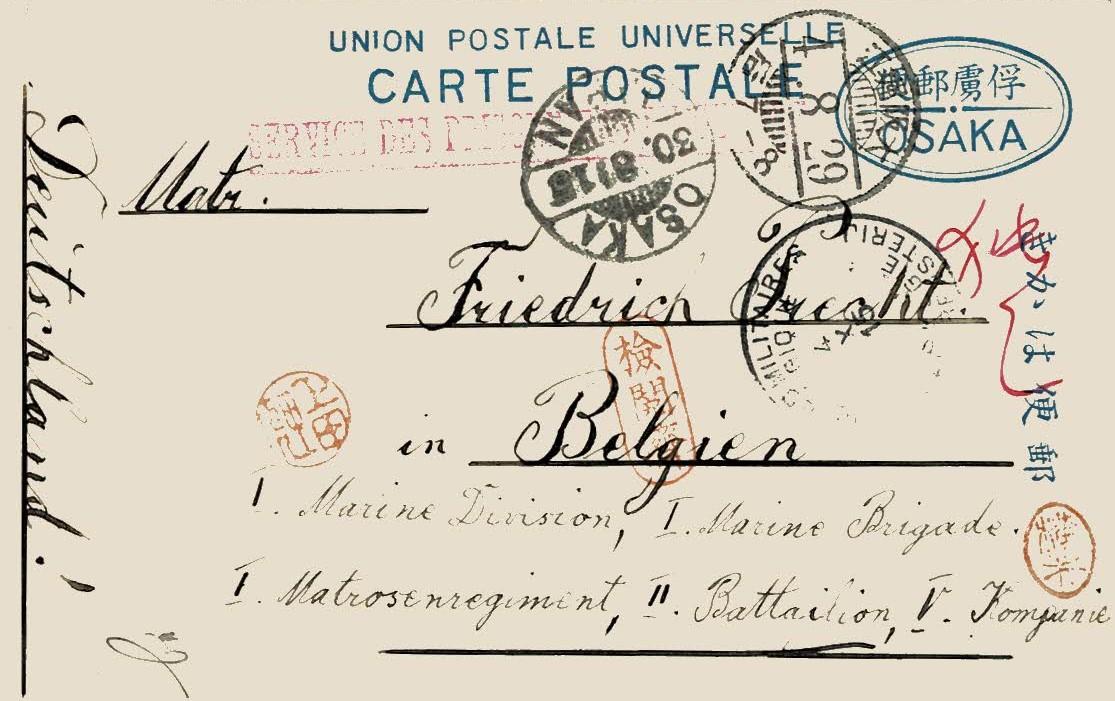 UNION POSTALE UNIVERSELLE
CARTE POSTALE
俘虜郵便
OSAKA
SERVICE DES
OSAKA
30.8.15
8 29
MILITAIRES
きかは便郵
Matr.
Friedrich Precht.
檢閲
in Belgien
I. Marine Division, I. Marine Brigade.
I. Matrosenregiment, II. Battailion, V. Kompanie
Deutschland!